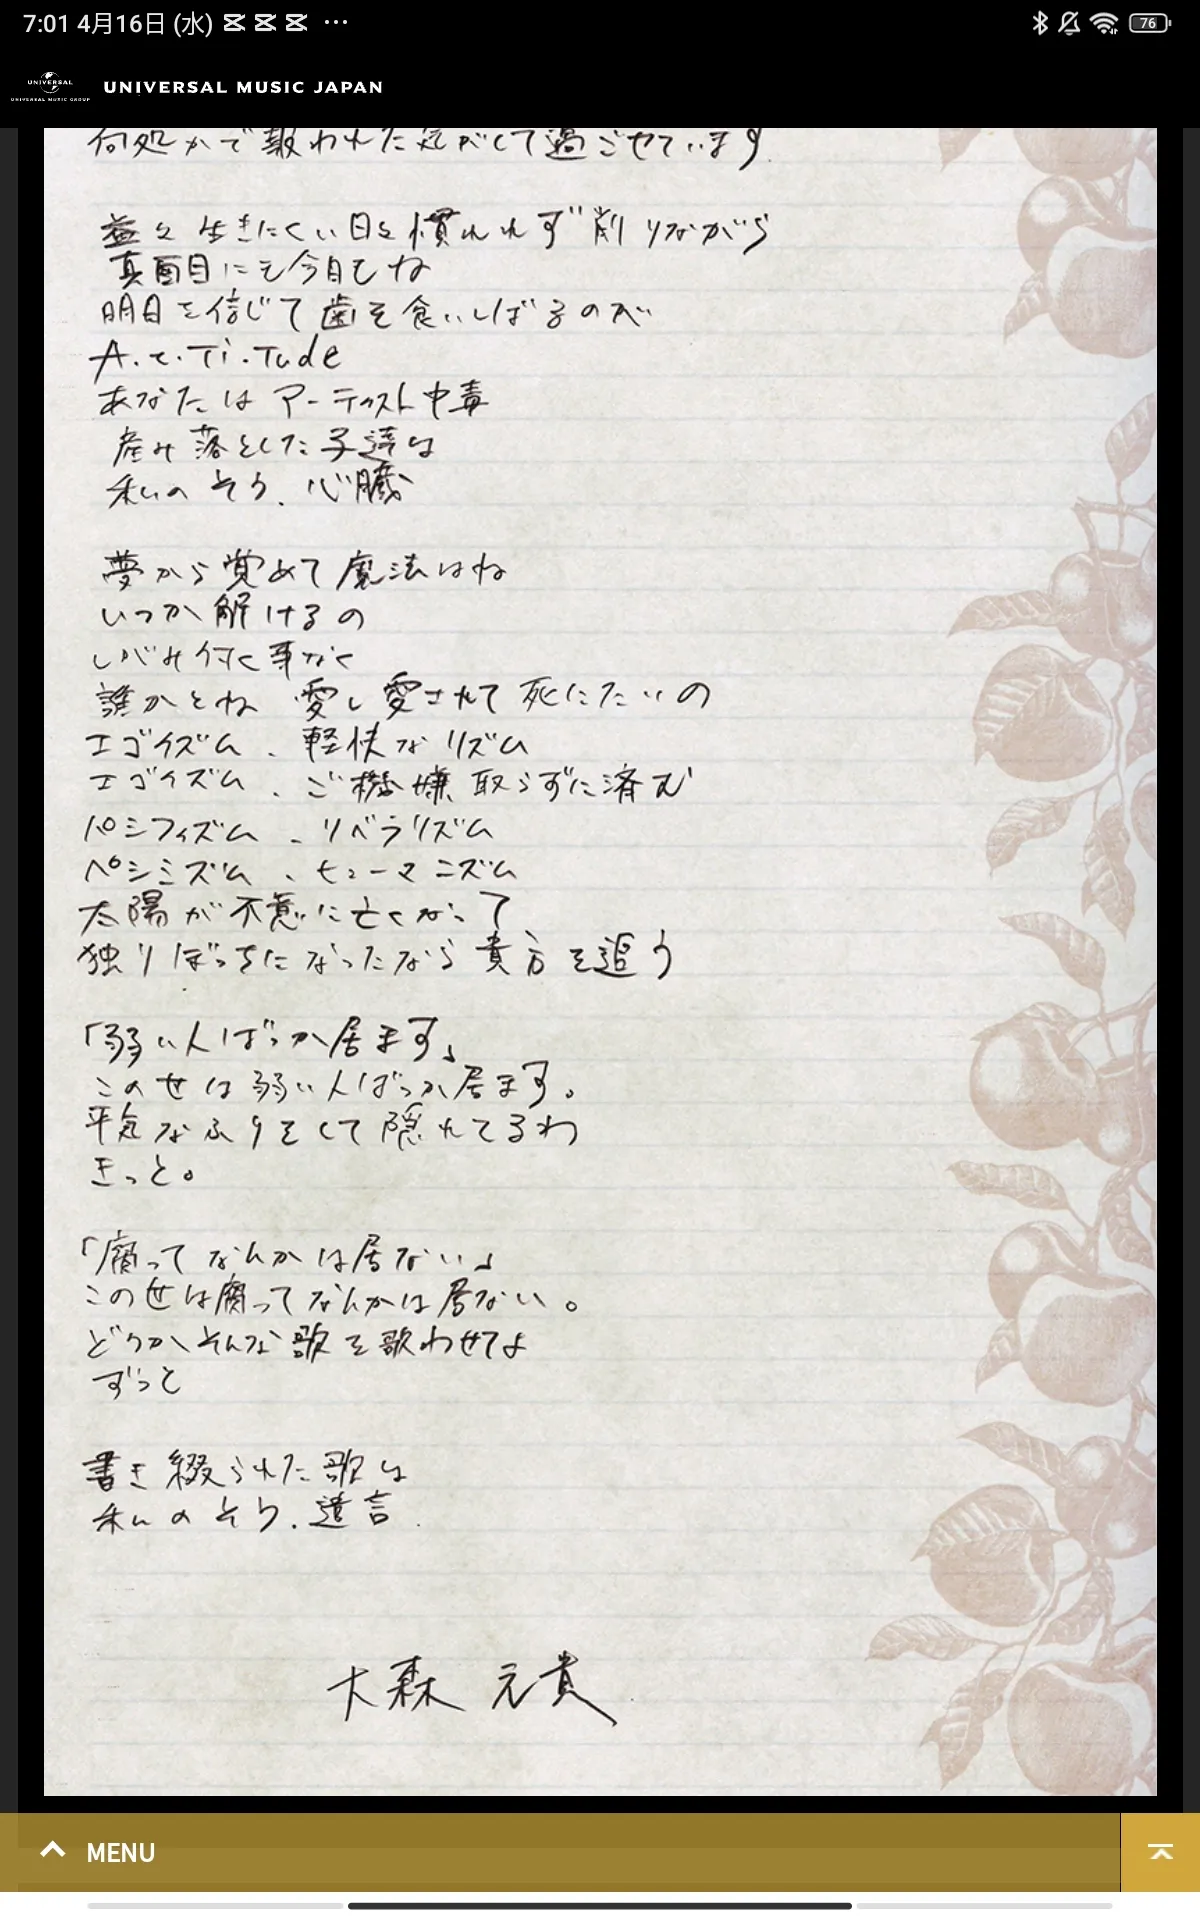 7:01 4月16日 (水)
76
UNIVERSAL
UNIVERSAL MUSIC GROUP
UNIVERSAL MUSIC JAPAN
何処かで報われた気がして過ごせています
益々生きにくい日々慣れれず削りながら
真面目にも今日もね
明日を信じて歯を食いしばるのが
A.t.Ti.Tude
あなたは アーティスト中毒
産み落とした子達は
私の そう、心臓
夢から覚めて魔法はね
いつか解けるの
しがみ付く事なく
誰かとね 愛し愛されて死にたいの
エゴイズム、軽快なリズム
エゴイズム、ご機嫌取らずに済む
パシフィズム、リベラリズム
ペシミズム、ヒューマニズム
太陽が不意に亡くなって
独りぼっちになったなら貴方を追う
「弱い人ばっか居ます」
この世は弱い人ばっか居ます。
平気なふりをして隠れてるわ
きっと。
「腐ってなんかは居ない」
この世は腐ってなんかは居ない。
どうかそんな歌を歌わせてよ
ずっと
書き綴られた歌は
私の そう、遺言.
大森 元貴
MENU